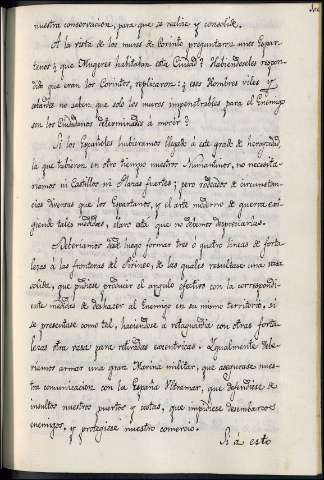 nuestra conservacion, para que se realize y consolide.
A la vista de los muros de Corinto preguntaron unos Espar-
tanos; que Mugeres habitaban esta Ciudad? Habiendoseles respon-
dido que eran los Corintos, replicaron: ¿ esos Hombres viles y
cobardes no saben, que solo los muros impenetrables para el Enemigo
son los Ciudadanos determinados á morir?
Si los Españoles hubieramos llegado á este grado de heroycidad,
la que tubieron en otro tiempo nuestros Numantinos, no necesita-
riamos ni Castillos ni Plazas fuertes; pero rodeados de circunstan-
cias diversas que los Espartanos, y el arte moderno de guerra exi-
giendo tales medidas, claro está que no debemos despreciarlas.
Deberiamos desde luego formar tres o quatro lineas de forta-
lezas á las fronteras del Pirineo, de las quales resultase una masa
solida, que pudiese producir el angulo efectivo con la correspondi-
ente medida de deshacer al Enemigo en su mismo territorio, si
se presentase como tal, haciendose á retaguardia con otras forta-
lezas otra masa para retiradas excentricas. Igualmente debe-
riamos armar una gran Marina militar, que asegurase nues-
tra comunicacion con la España Ultramar, que defendiese de
insultos nuestros puertos y costas, que impidiese desembarcos
enemigos, y protegiese nuestro comercio.
Si á esto